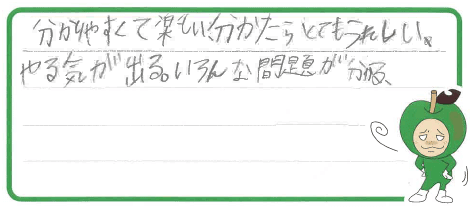 分かりやすくて楽しい分かたらとてもうれしい。
やる気が出る。いろんな問題が分かる、